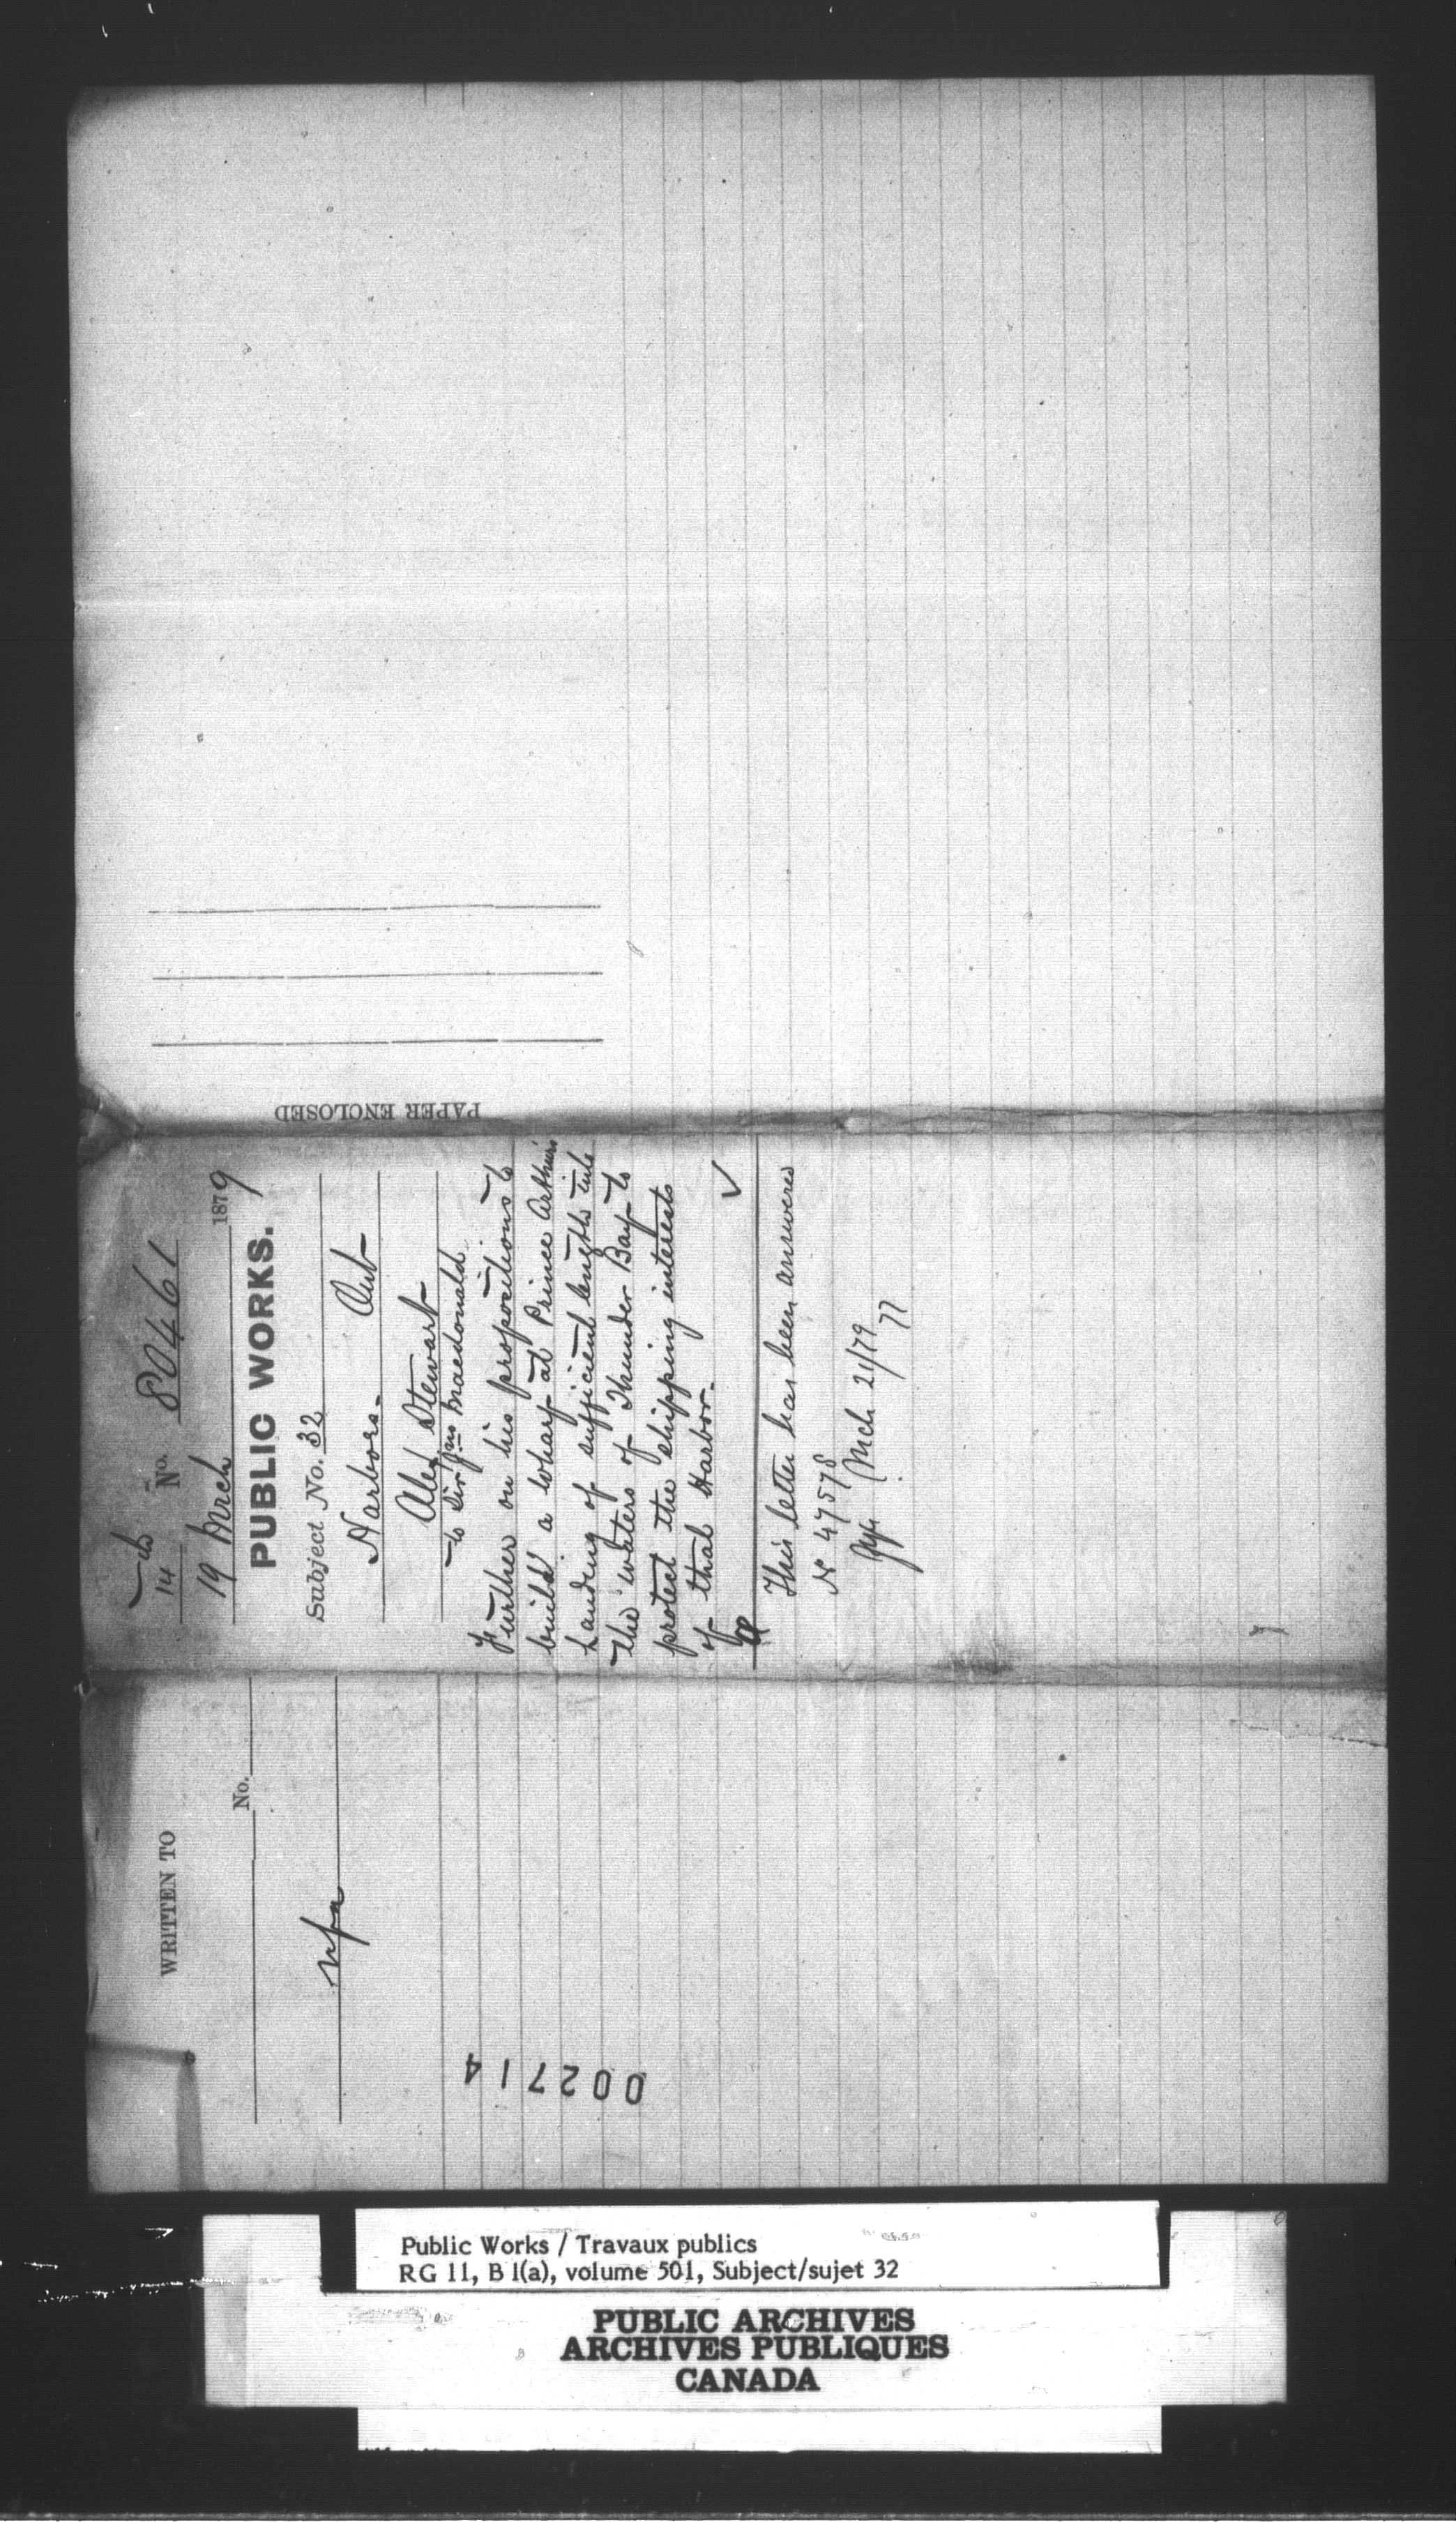 WRITTEN TO
No.
nfa
002714
14 No. 80461
19 Mrch 1879
PUBLIC WORKS.
Subject No. 32
Harbors - Ont
Alex Stewart
to Sir Jno Macdonald
Further on his propositions to
build a wharf at Prince Arthurs
Landing of sufficient length into
the waters of Thunder Bay to
protect the shipping interests
of that Harbor.
This letter has been answered
No 47578
Mch 21/79
77
PAPER ENCLOSED
Public Works / Travaux publics
RG 11, B 1(a), volume 501, Subject/sujet 32
PUBLIC ARCHIVES
ARCHIVES PUBLIQUES
CANADA